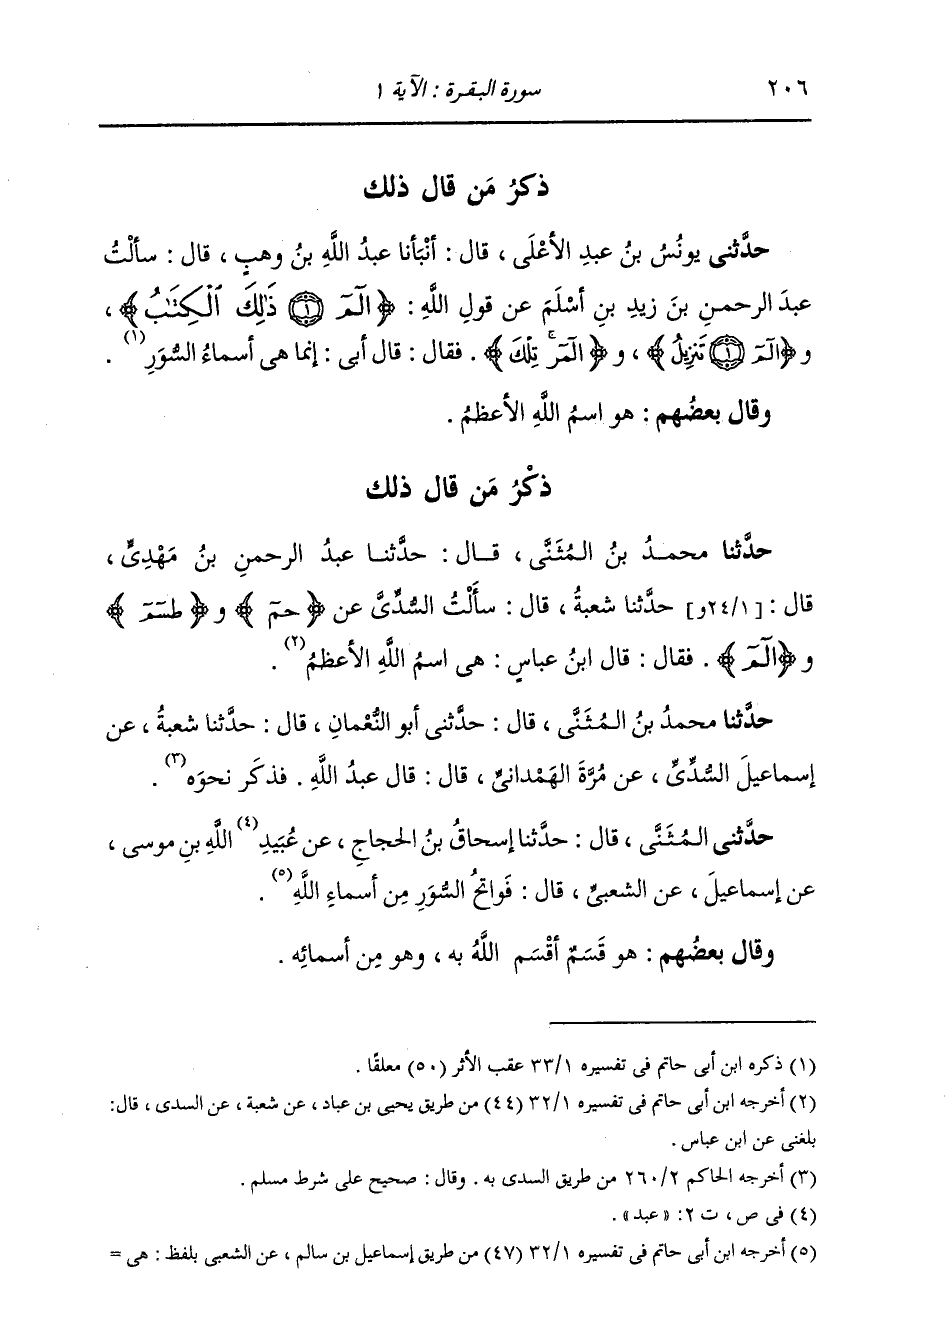 ٢٠٦
سورة البقرة : الآية ١
ذكرُ مَن قال ذلك
حدَّثنى يونُسُ بنُ عبدِ الأعْلَى ، قال : أنْبَأنا عبدُ اللَّهِ بنُ وهبٍ ، قال : سألْتُ
عبدَ الرحمنِ بنَ زيدِ بنِ أسْلَمَ عن قولِ اللَّهِ : ﴿ الٓمٓ ۝١ ذَٰلِكَ ٱلْكِتَٰبُ ﴾ ،
و ﴿الٓمٓ ۝١ تَنزِيلُ ﴾ ، و ﴿ الٓمٓرۚ تِلْكَ ﴾ . فقال : قال أبى : إنما هى أسماءُ السُّوَرِ(١) .
وقال بعضُهم : هو اسمُ اللَّهِ الأعظمُ .
ذكْرُ مَن قال ذلك
حدَّثنا محمدُ بنُ المُثَنَّى ، قال : حدَّثنا عبدُ الرحمنِ بنُ مَهْدِىٍّ ،
قال : [٢٤/١و] حدَّثنا شعبةُ ، قال : سألْتُ السُّدِّىَّ عن ﴿ حمٓ ﴾ و ﴿ طسٓمٓ ﴾
و ﴿الٓمٓ ﴾ . فقال : قال ابنُ عباسٍ : هى اسمُ اللَّهِ الأعظمُ(٢) .
حدَّثنا محمدُ بنُ المُثَنَّى ، قال : حدَّثنى أبو النُّعْمانِ ، قال : حدَّثنا شعبةُ ، عن
إسماعيلَ السُّدِّىِّ ، عن مُرَّةَ الهَمْدانىِّ ، قال : قال عبدُ اللَّهِ . فذكَر نحوَه(٣) .
حدَّثنى المُثَنَّى ، قال : حدَّثنا إسحاقُ بنُ الحجاجِ ، عن عُبَيدِ(٤) اللَّهِ بنِ موسى ،
عن إسماعيلَ ، عن الشعبىِّ ، قال : فَواتحُ السُّوَرِ مِن أسماءِ اللَّهِ(٥) .
وقال بعضُهم : هو قَسَمٌ أقْسَم اللَّهُ به ، وهو مِن أسمائِه .
(١) ذكره ابن أبى حاتم فى تفسيره ٣٣/١ عقب الأثر (٥٠) معلقًا .
(٢) أخرجه ابن أبى حاتم فى تفسيره ٣٢/١ (٤٤) من طريق يحيى بن عباد ، عن شعبة ، عن السدى ، قال :
بلغنى عن ابن عباس .
(٣) أخرجه الحاكم ٢٦٠/٢ من طريق السدى به . وقال : صحيح على شرط مسلم .
(٤) فى ص ، ت ٢ : « عبد » .
(٥) أخرجه ابن أبى حاتم فى تفسيره ٣٢/١ (٤٧) من طريق إسماعيل بن سالم ، عن الشعبى بلفظ : هى =